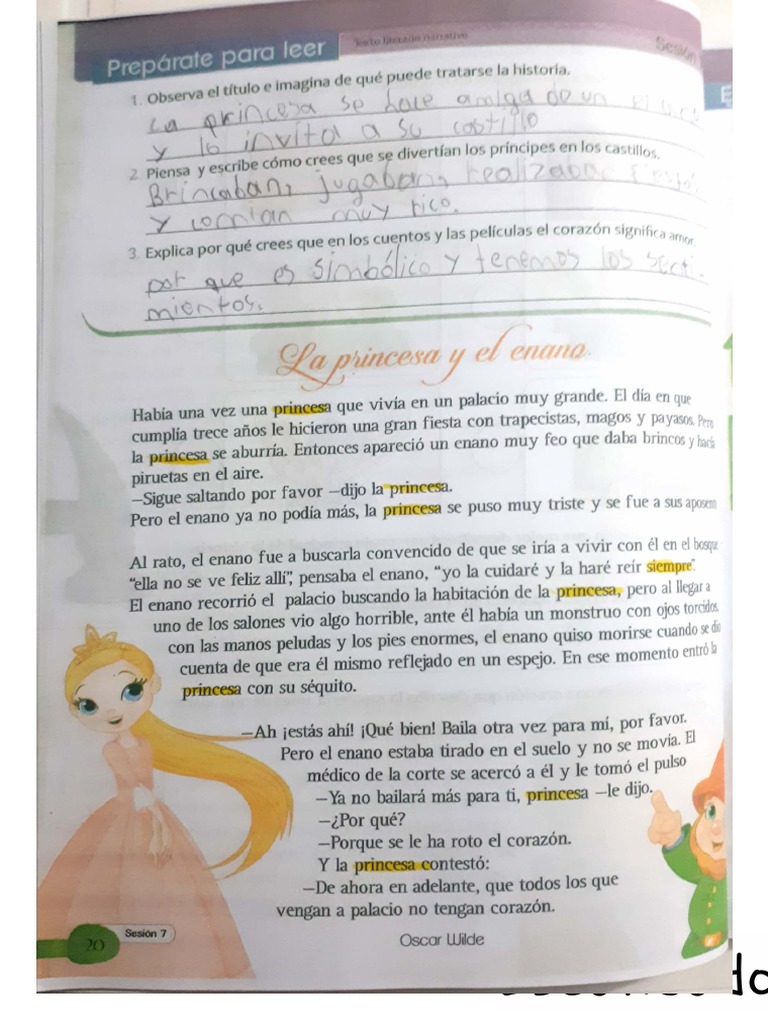 Prepárate para leer
Texto literario narrativo
Sesión
E
1. Observa el título e imagina de qué puede tratarse la historia.
La princesa se hace amiga de un
y lo invita a su castillo
2. Piensa y escribe cómo crees que se divertían los príncipes en los castillos.
Brincaban, jugaban, realizaba
y comian muy rico.
3. Explica por qué crees que en los cuentos y las películas el corazón significa amor
por que es simbólico y tenemos los secti-
mientos.
La princesa y el enano
Había una vez una princesa que vivía en un palacio muy grande. El día en que
cumplía trece años le hicieron una gran fiesta con trapecistas, magos y payasos. Pero
la princesa se aburría. Entonces apareció un enano muy feo que daba brincos y hacía
piruetas en el aire.
—Sigue saltando por favor —dijo la princesa.
Pero el enano ya no podía más, la princesa se puso muy triste y se fue a sus aposen
Al rato, el enano fue a buscarla convencido de que se iría a vivir con él en el bosque
“ella no se ve feliz allí”, pensaba el enano, “yo la cuidaré y la haré reír siempre”.
El enano recorrió el palacio buscando la habitación de la princesa, pero al llegar a
uno de los salones vio algo horrible, ante él había un monstruo con ojos torcidos,
con las manos peludas y los pies enormes, el enano quiso morirse cuando se dio
cuenta de que era él mismo reflejado en un espejo. En ese momento entró la
princesa con su séquito.
—Ah ¡estás ahí! ¡Qué bien! Baila otra vez para mí, por favor.
Pero el enano estaba tirado en el suelo y no se movia. El
médico de la corte se acercó a él y le tomó el pulso
—Ya no bailará más para ti, princesa —le dijo.
—¿Por qué?
—Porque se le ha roto el corazón.
Y la princesa contestó:
—De ahora en adelante, que todos los que
vengan a palacio no tengan corazón.
20
Sesión 7
Oscar Wilde